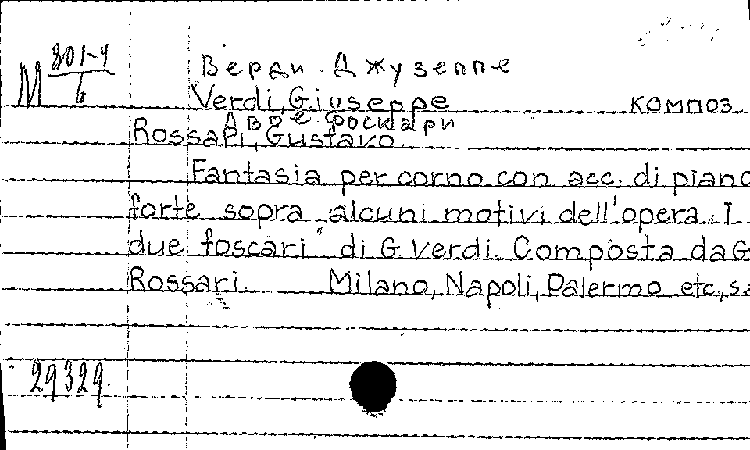 М 801-4/6
Верди Джузеппе
Verdi, Giuseppe композ
Двое Фоскари
Rossari, Gustavo.
Fantasia per corno con acc. di piano
forte sopra „alcuni motivi dell'opera „I
due foscari" di G. Verdi. Composta da G
Rossari. Milano, Napoli, Palermo etc., s.a
29329